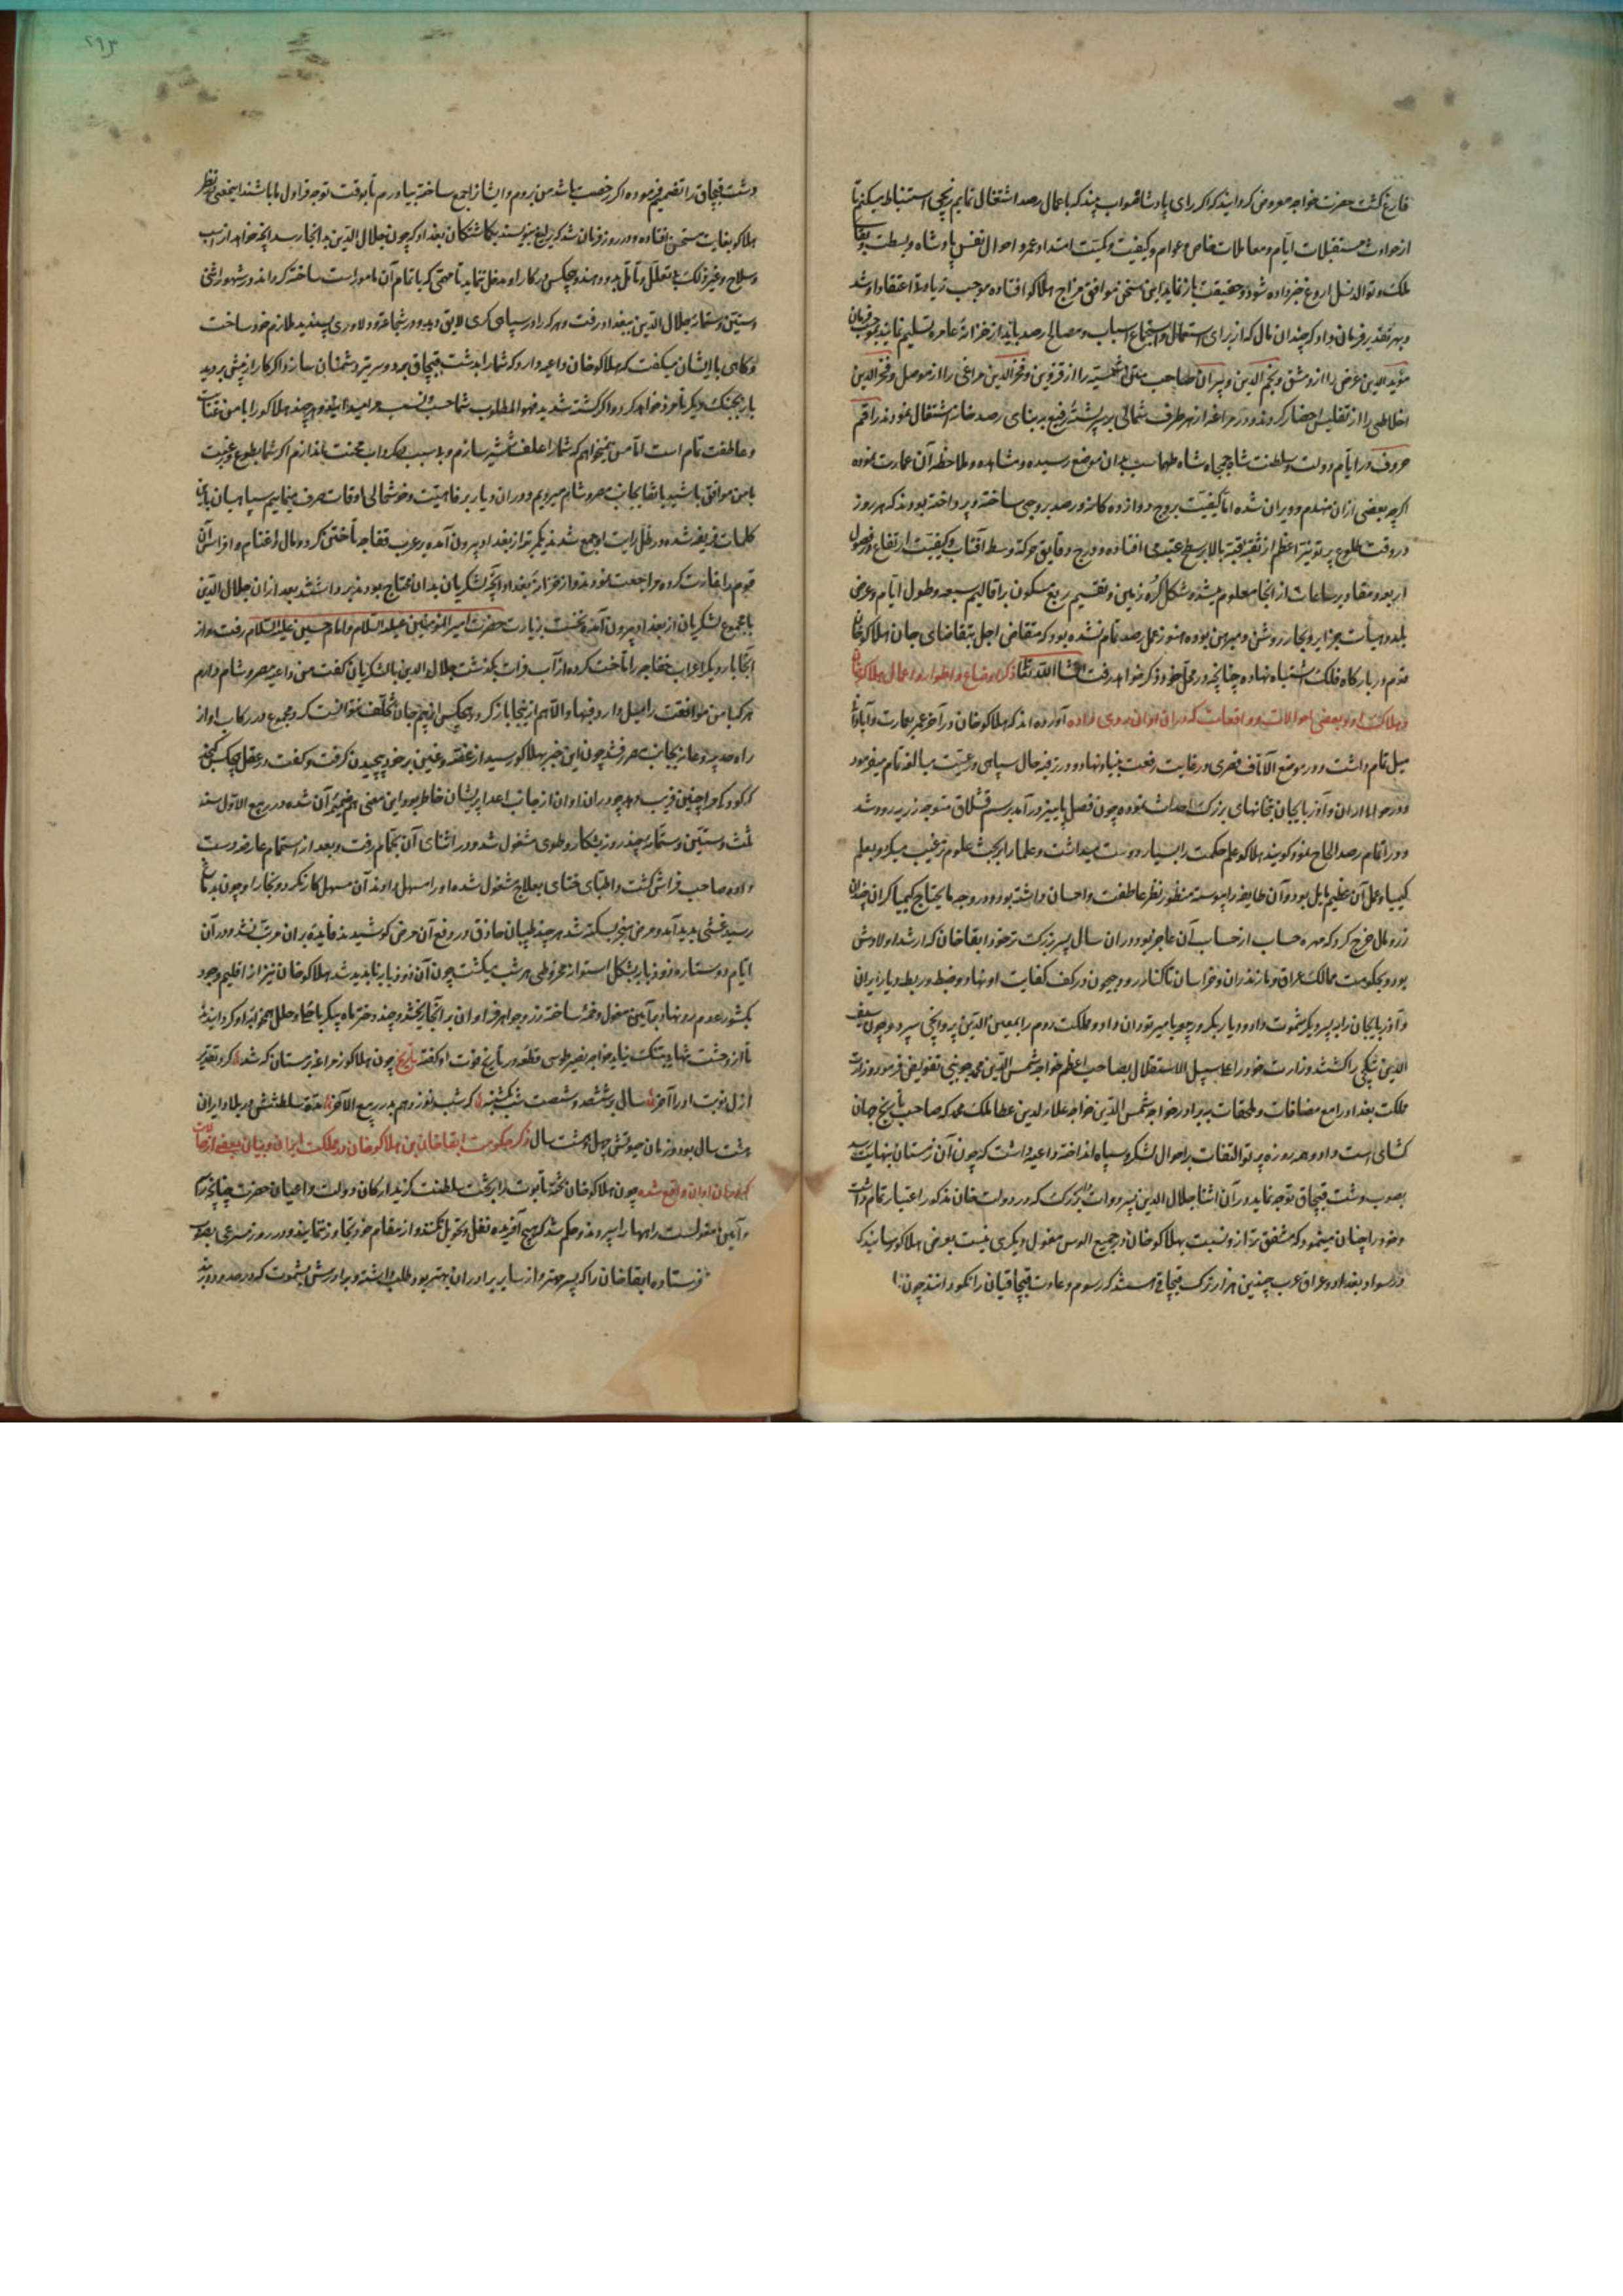 فارغ گشت حضرت خواجه معروض گردانید که اگر رای پادشاه صواب بیند که باعمال رصد اشتغال نمایم
از حوادث مستقبلات ایام و معاملات خاص و عوام و کیفیت و کمیت امتداد عمر و احوال نفس پادشاه و بسطت
ملک و توالد نسل اروغ خبر داده شود و حقیقت باز نماید این سخن موافق مزاج هلاکو افتاده موجب زیادتی اعتقاد او شد
فرمان داد که چندان مال که از برای استعمال و استجماع اسباب و مصالح رصد باید از خزانه عامره تسلیم نمایند
مؤید الدین عرضی را از دمشق و نجم الدین دبیران صاحب شمسیه را از قزوین و فخر الدین مراغی را از موصل و فخر الدین
اخلاطی را از تفلیس احضار کردند و در مراغه از طرف شمالی بر پشته رفیع بنای رصد خانه اشتغال نمودند راقم
حروف در ایام دولت و سلطنت شاه جمجاه شاه طهماسب بدان موضع رسیده و مشاهده و ملاحظه آن عمارت نموده
اگرچه بعضی ازان منهدم و ویران شده اما کیفیت بروج دوازده کانه در رصد بروجی ساخته و پرداخته بودند که هر روز
در وقت طلوع پرتو نیر اعظم از ثقبه قبه بالا بر سطح عتبه می افتاده و درج و دقایق حرکت وسط آفتاب و کیفیت ارتفاع در فصول
اربعه و مقادیر ساعات از انجا معلوم میشد و شکل کره زمین و تقسیم ربع مسکون بر اقالیم سبعه و طول ایام و عرض
بلد و هیأت جزایر و بحار روشن و مبرهن بوده هنوز عمل رصد تمام نشده بود که متقاضی اجل بتقاضای جان هلاکو خان
قدم در بارگاه فلک اشتباه نهاده چنانچه در محل خود ذکر خواهد رفت انشا الله تعالی ذکر اوضاع و اطوار و اعمال هلاکو خان
و هلاکت او و بعضی احوالات و واقعات که در ان اوان روی داده آورده اند که هلاکو خان در آخر عمر بعمارت و آبادانی
میل تمام داشت و در موضع الاتاق قصری در غایت رفعت بنیاد نهاد و در ترفیه حال سپاهی و رعیت مبالغه تمام میفرمود
و در حوالی اران و آذربایجان بتخانهای بزرگ احداث نموده چون فصل پاییز در آمد برسم قشلاق متوجه زرینه رود شد
و در اتمام رصد الحاح نمود گویند هلاکو علم حکمت را بسیار دوست میداشت و علما را ببحث علوم ترغیب میکرد و بعلم
کیمیا و عمل آن عظیم مایل بود و آن طایفه را پیوسته منظور نظر عاطفت و احسان داشته بود و در وجه ما یحتاج کیمیا گران چندان
زر و مال خرج کرد که مهره حساب از حساب آن عاجز بود در ان سال پسر بزرگتر خود ابقا خان که ارشد اولادش
بود بحکومت ممالک عراق و مازندران و خراسان تا کنار رود جیحون در کف کفایت او نهاد و ضبط و ربط دیار ایران
و آذربایجان را به پسر دیگر یشموت داد و دیار بکر و ربیعه بامیر توران داد و مملکت روم را بمعین الدین پروانچی سپرد و چون سیف
الدین بتکچی را کشتند وزارت خود را علی سبیل الاستقلال بصاحب اعظم خواجه شمس الدین محمد جوینی تفویض فرمود و وزارت
مملکت بغداد را مع مضافات و ملحقات ببرادر خواجه شمس الدین خواجه علاء الدین عطا ملک محمد که صاحب تاریخ جهان
کشای است داد و همه روزه پرتو التفات بر احوال لشکر و سپاه انداخته داعیه داشت که چون آن زمستان بنهایت رسد
بصوب دشت قبچاق توجه نماید در آن اثنا جلال الدین پسر دوات دار بزرگ که در دولت خان مذکور اعتبار تمام داشت
و خود را چنان مینمود که مشفق تر از و نسبت بهلاکو خان در جمیع الوس مغول دیگری نیست بعرض هلاکو رسانید که
در سواد بغداد و عراق عرب چندین هزار ترک قبچاق هستند که رسوم و عادت قبچاقیان را نیکو دانند چون
دشت قبچاق را تصمیم فرموده اگر رخصت باشد من بروم و ایشانرا جمع ساخته بیاورم تا بوقت توجه قراول ما باشند این معنی در نظر
هلاکو بغایت مستحسن افتاده و در روز فرمان شد که یرلیغ بنویسند بکماشتکان بغداد که چون جلال الدین بدانجا رسد آنچه خواهد از اسب
و سلاح و غیر ذلک بی تعلل و تأمل بدو دهند و هیچکس در کار او مدخل ننماید تا مهمی که باتمام آن مامور است ساخته گرداند در شهور اثنی
و ستین و ستمائه جلال الدین ببغداد رفت و هر که را در سپاهی کری لایق دید و در شجاعت و دلاوری پسندید ملازم خود ساخت
و گاهی با ایشان میگفت که هلاکو خان داعیه دارد که شما را بدشت قبچاق برد و سپر تیر دشمنان سازد اگر کار از پیش بردید
بار بجنگ دیگر نامزد خواهد کرد و اگر کشته شدید فهو المطلوب شما حسب و نسب مرا میدانید و هر چند هلاکو را با من عنایت
و عاطفت تمام است اما من نمیخواهم که شما را علف شمشیر سازم و بی سبب در گرداب محنت اندازم اگر شما بطوع و رغبت
با من موافق باشید باتفاق بجانب مصر و شام میرویم و در ان دیار برفاهیت و خوشحالی اوقات صرف مینماییم سپاهیان باین
کلمات فریفته شده در ظل رایت او جمع شدند
قوم را غارت کرده مراجعت نمودند و از خزانه بغداد آنچه لشکریان بدان محتاج بودند برداشتند بعد ازان جلال الدین
با مجموع لشکریان از بغداد بیرون آمده نخست بزیارت حضرت امیر المؤمنین علیه السلام و امام حسین علیه السلام رفت و از
انجا بار دیگر اعراب خفاجه را تاخت کرده از آب فرات بگذشت جلال الدین با لشکریان گفت من داعیه مصر و شام دارم
هر که با من موافقت را میل دارد فبها و الا هم از اینجا باز گردد هیچکس از بیم جان تخلف نتوانست کرد و مجموع در رکاب او از
راه حدیثه و عانه بجانب مصر رفتند چون این خبر بهلاکو رسید از غصه و غبن بر خود پیچیدن گرفت و گفت در عقل هیچکس
کودک مرا چنین فریب دهد چو در ان اوان از جانب اعدا پریشان خاطر بود این معنی هم ضمیمه آن شده در ربیع الاول سنه
ثلث و ستین و ستمائه چند روز بشکار و طوی مشغول شد و در اثنای آن بحمام رفت و بعد از استحمام عارضه دست
داده صاحب فراش گشت و اطبای ختای بعلاج مشغول شده او را مسهل دادند آن مسهل کار نکرد
رسید غشی پدید آمد و مرض منجر بسکته شد هر چند طبیبان حاذق در دفع آن مرض کوشیدند فایده بران مرتب نشد و در آن
ایام دو ستاره ذو ذنابه بشکل استوانه مخروطی هر شب میگشت چون آن ذو ذنابه ناپدید شد هلاکو خان نیز از اقلیم وجود
بکشور عدم رو نهاد و بآیین مغول دخمه ساخته زر و جواهر فراوان در آنجا ریختند و چند دختر ماه پیکر با حلی و حلل همخوابه او گردانیدند
تا از وحشت تنهایی تنگ نیاید خواجه نصیر طوسی قطعه در تاریخ فوت او گفته تاریخ چون هلاکو ز مراغه بزمستان گه شد کرد تقدیر
ازل نوبت او را آخر سال بر ششصد و شصت و سه شب یکشنبه که شب نوزدهم بد ز ربیع الآخر مدت سلطنتش در بلاد ایران
هشت سال بود و زمان حیوتش چهل و هشت سال ذکر حکومت ابقا خان بن هلاکو خان در مملکت ایران و بیان بعضی از حالات
که در ان اوان واقع شده چون هلاکو خان تخته تابوت را بر تخت سلطنت گزید ارکان دولت و اعیان حضرت چنانچه رسم
و آیین مغولست راهها را سپردند و حکم شد که هیچ آفریده نقل و تحویل نکند و از مقام خود تجاوز ننمایند و در روز مسرعی بطلب
فرستاده ابقا خان را که پسر مهتر و از سایر برادران بهتر بود طلب داشتند و برادرش یشموت که در